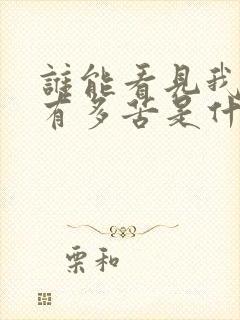 誰能看見我
有多苦是什
栗和